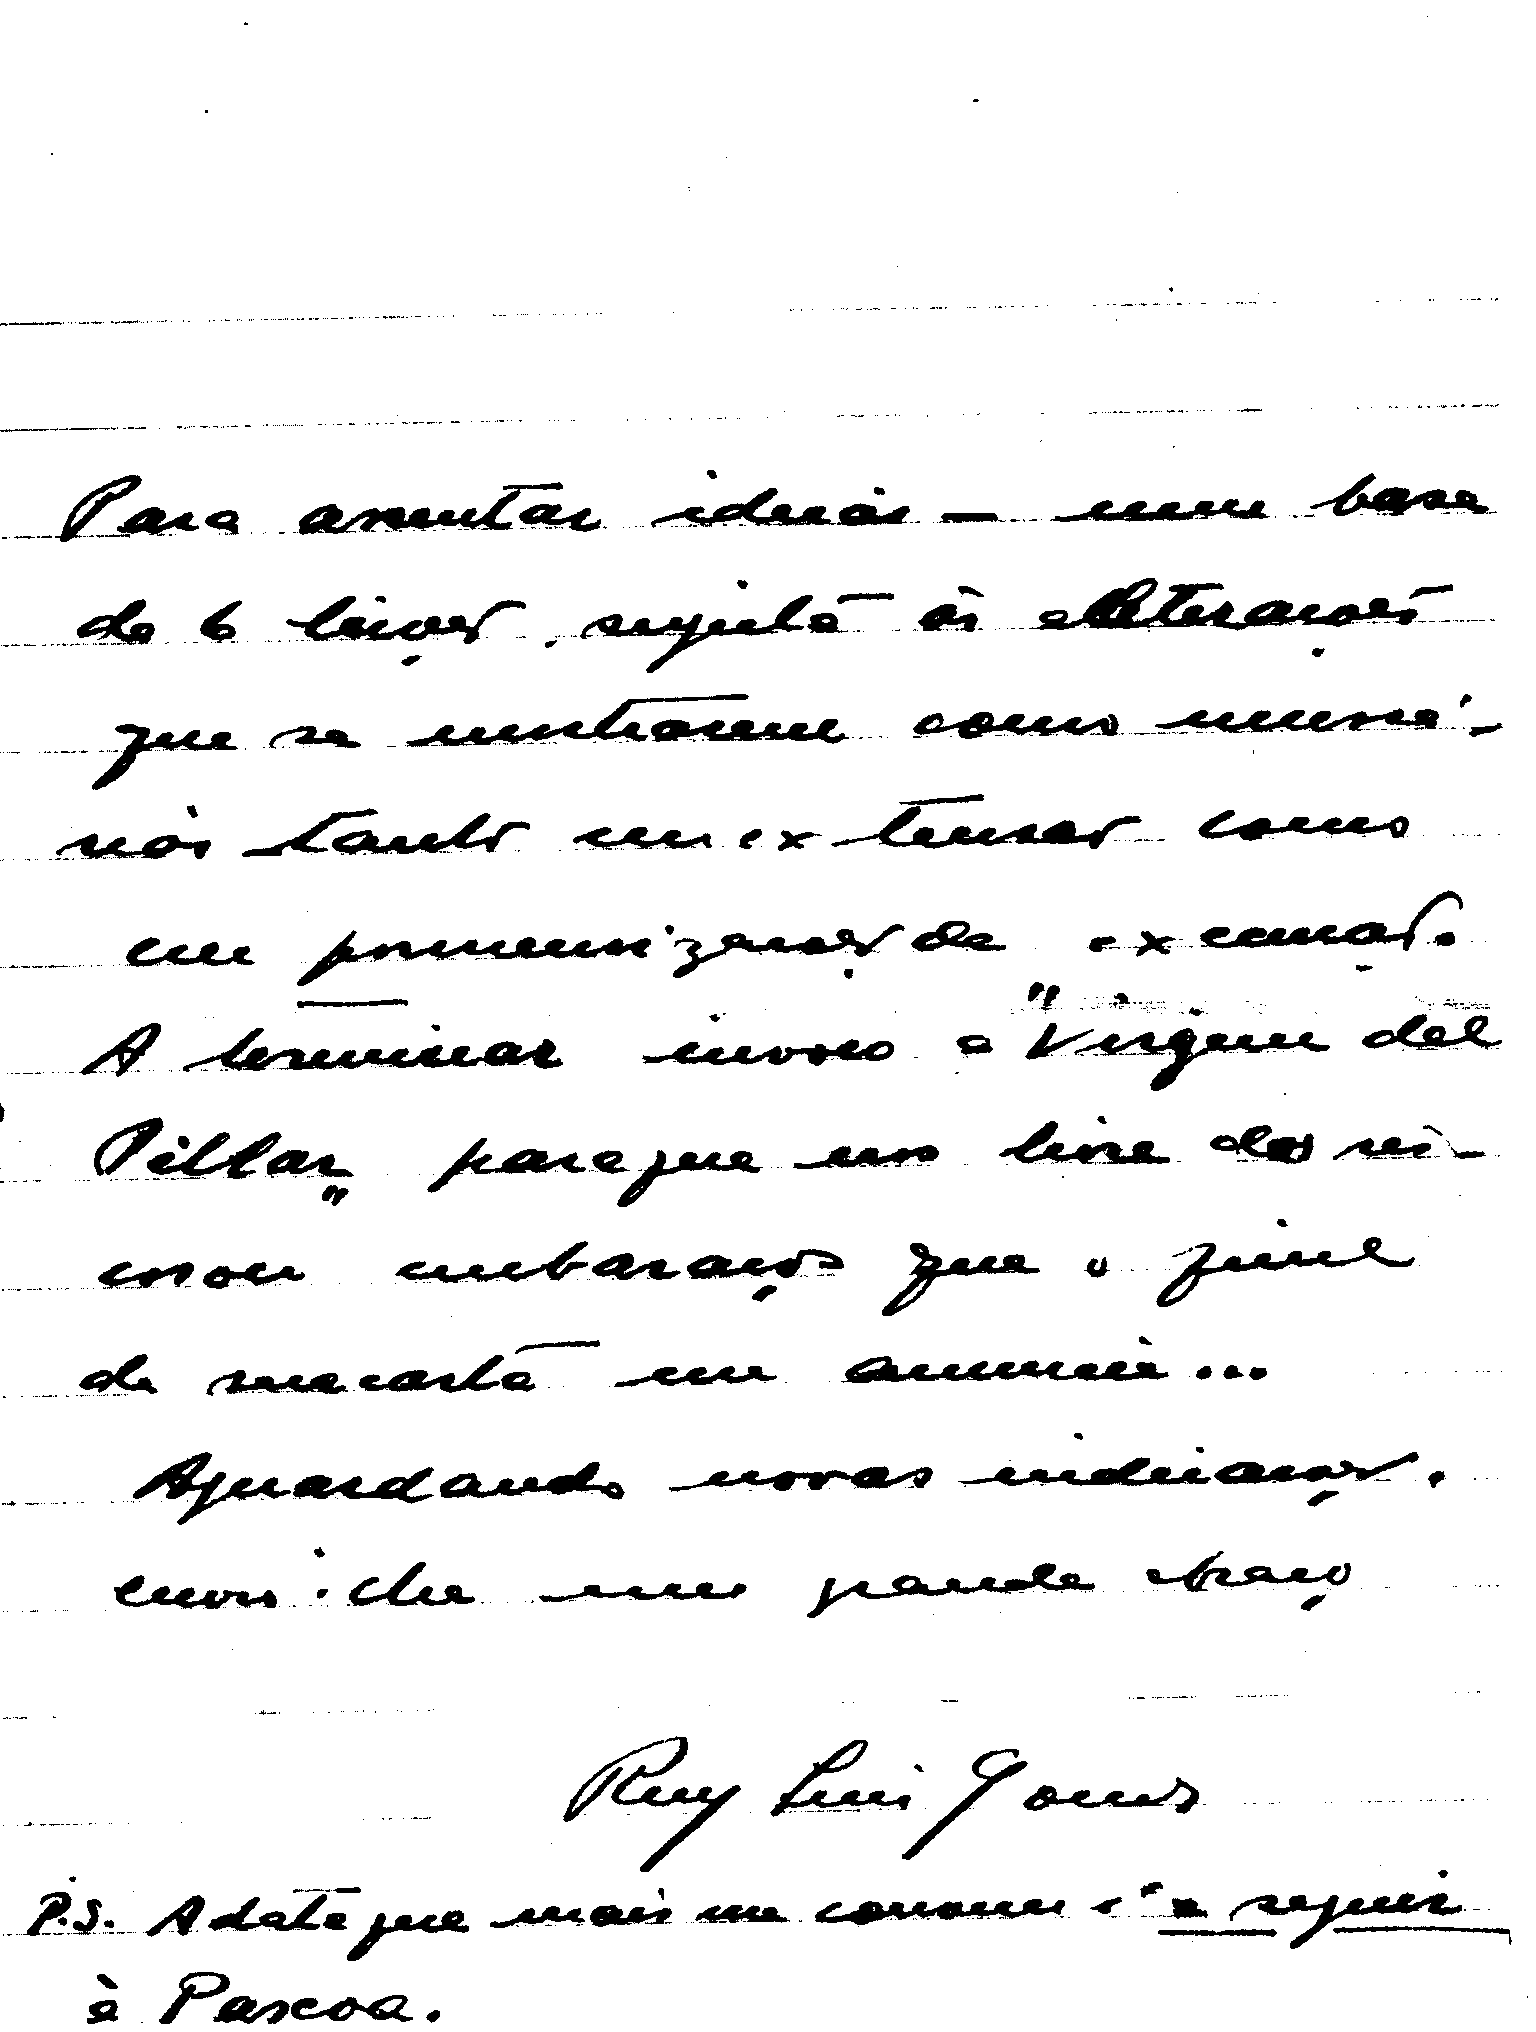 Para assentar ideias — numa base
de 6 lições, sujeita às alterações
que se mostrarem como necessá-
rias tanto em extensão como
em pormenorização de execução.
A terminar invoco a "Virgem del
Pillar" para que nos livre dos
embaraços que o final
da sua carta me anuncia...
Aguardando novas indicações,
envio-lhe um grande abraço
Ruy Luís Gomes
P.S. A data que mais me convém é a seguir
à Pascoa.